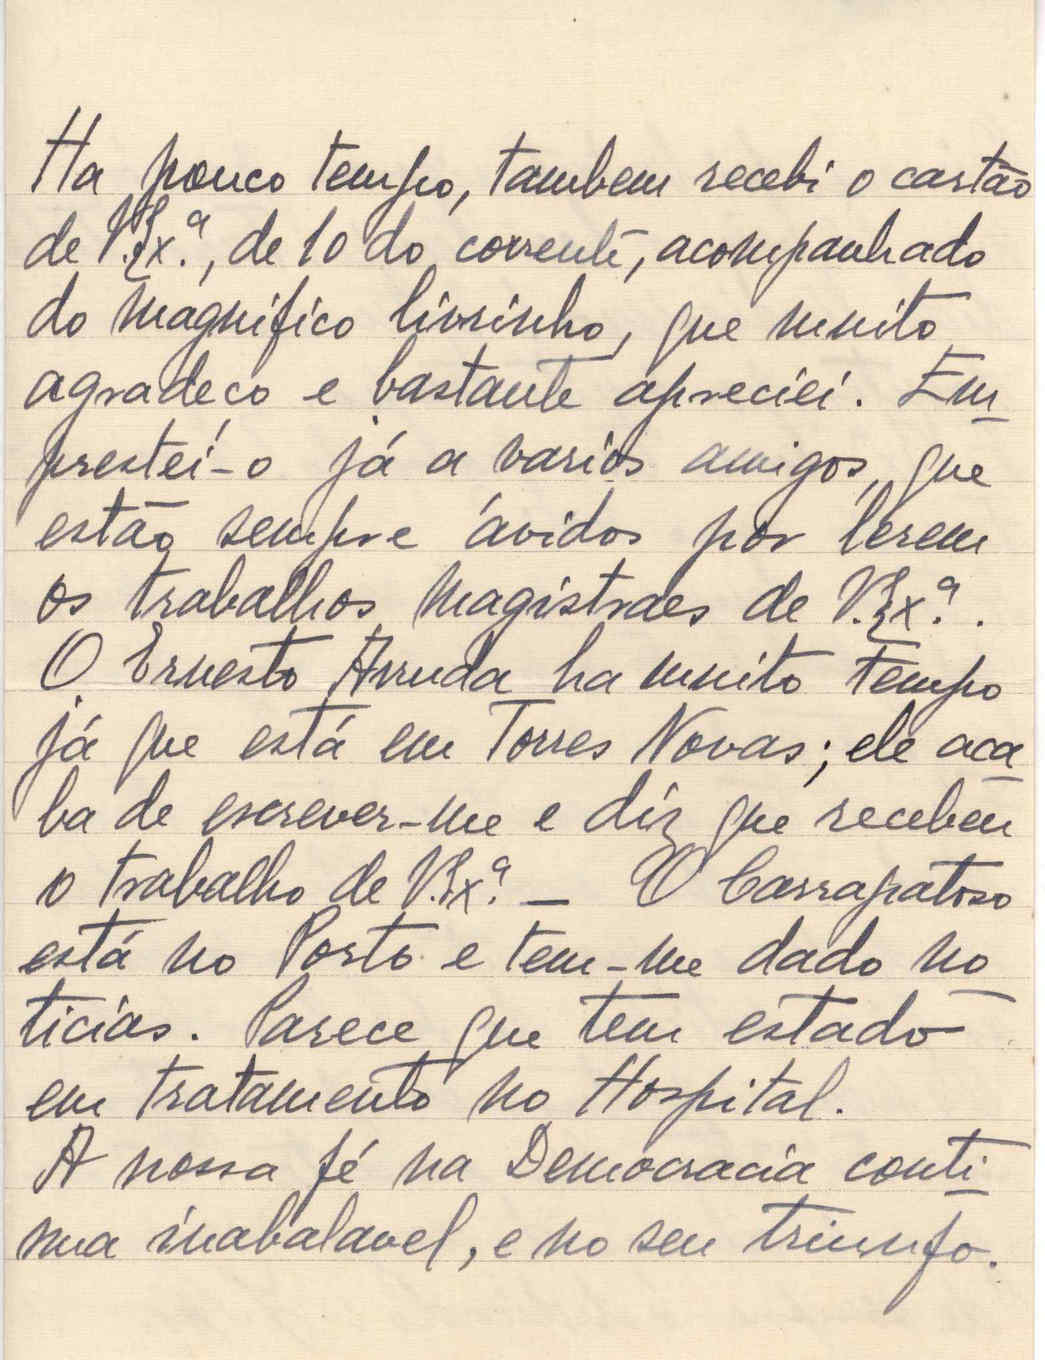 Ha pouco tempo, tambem recebi o cartão
de V. Ex.ª, de 10 do corrente, acompanhado
do magnifico livrinho, que muito
agradeco e bastante apreciei. Em_
prestei-o já a varios amigos, que
estão sempre ávidos por lerem
os trabalhos magistraes de V. Ex.ª.
O Ernesto Arruda ha muito tempo
já que está em Torres Novas; ele aca_
ba de escrever-me e diz que recebeu
o trabalho de V. Ex.ª — O Carrapatoso
está no Porto e tem-me dado no_
ticias. Parece que tem estado
em tratamento no Hospital.
A nossa fé na Democracia conti_
nua inabalavel, e no seu triunfo.